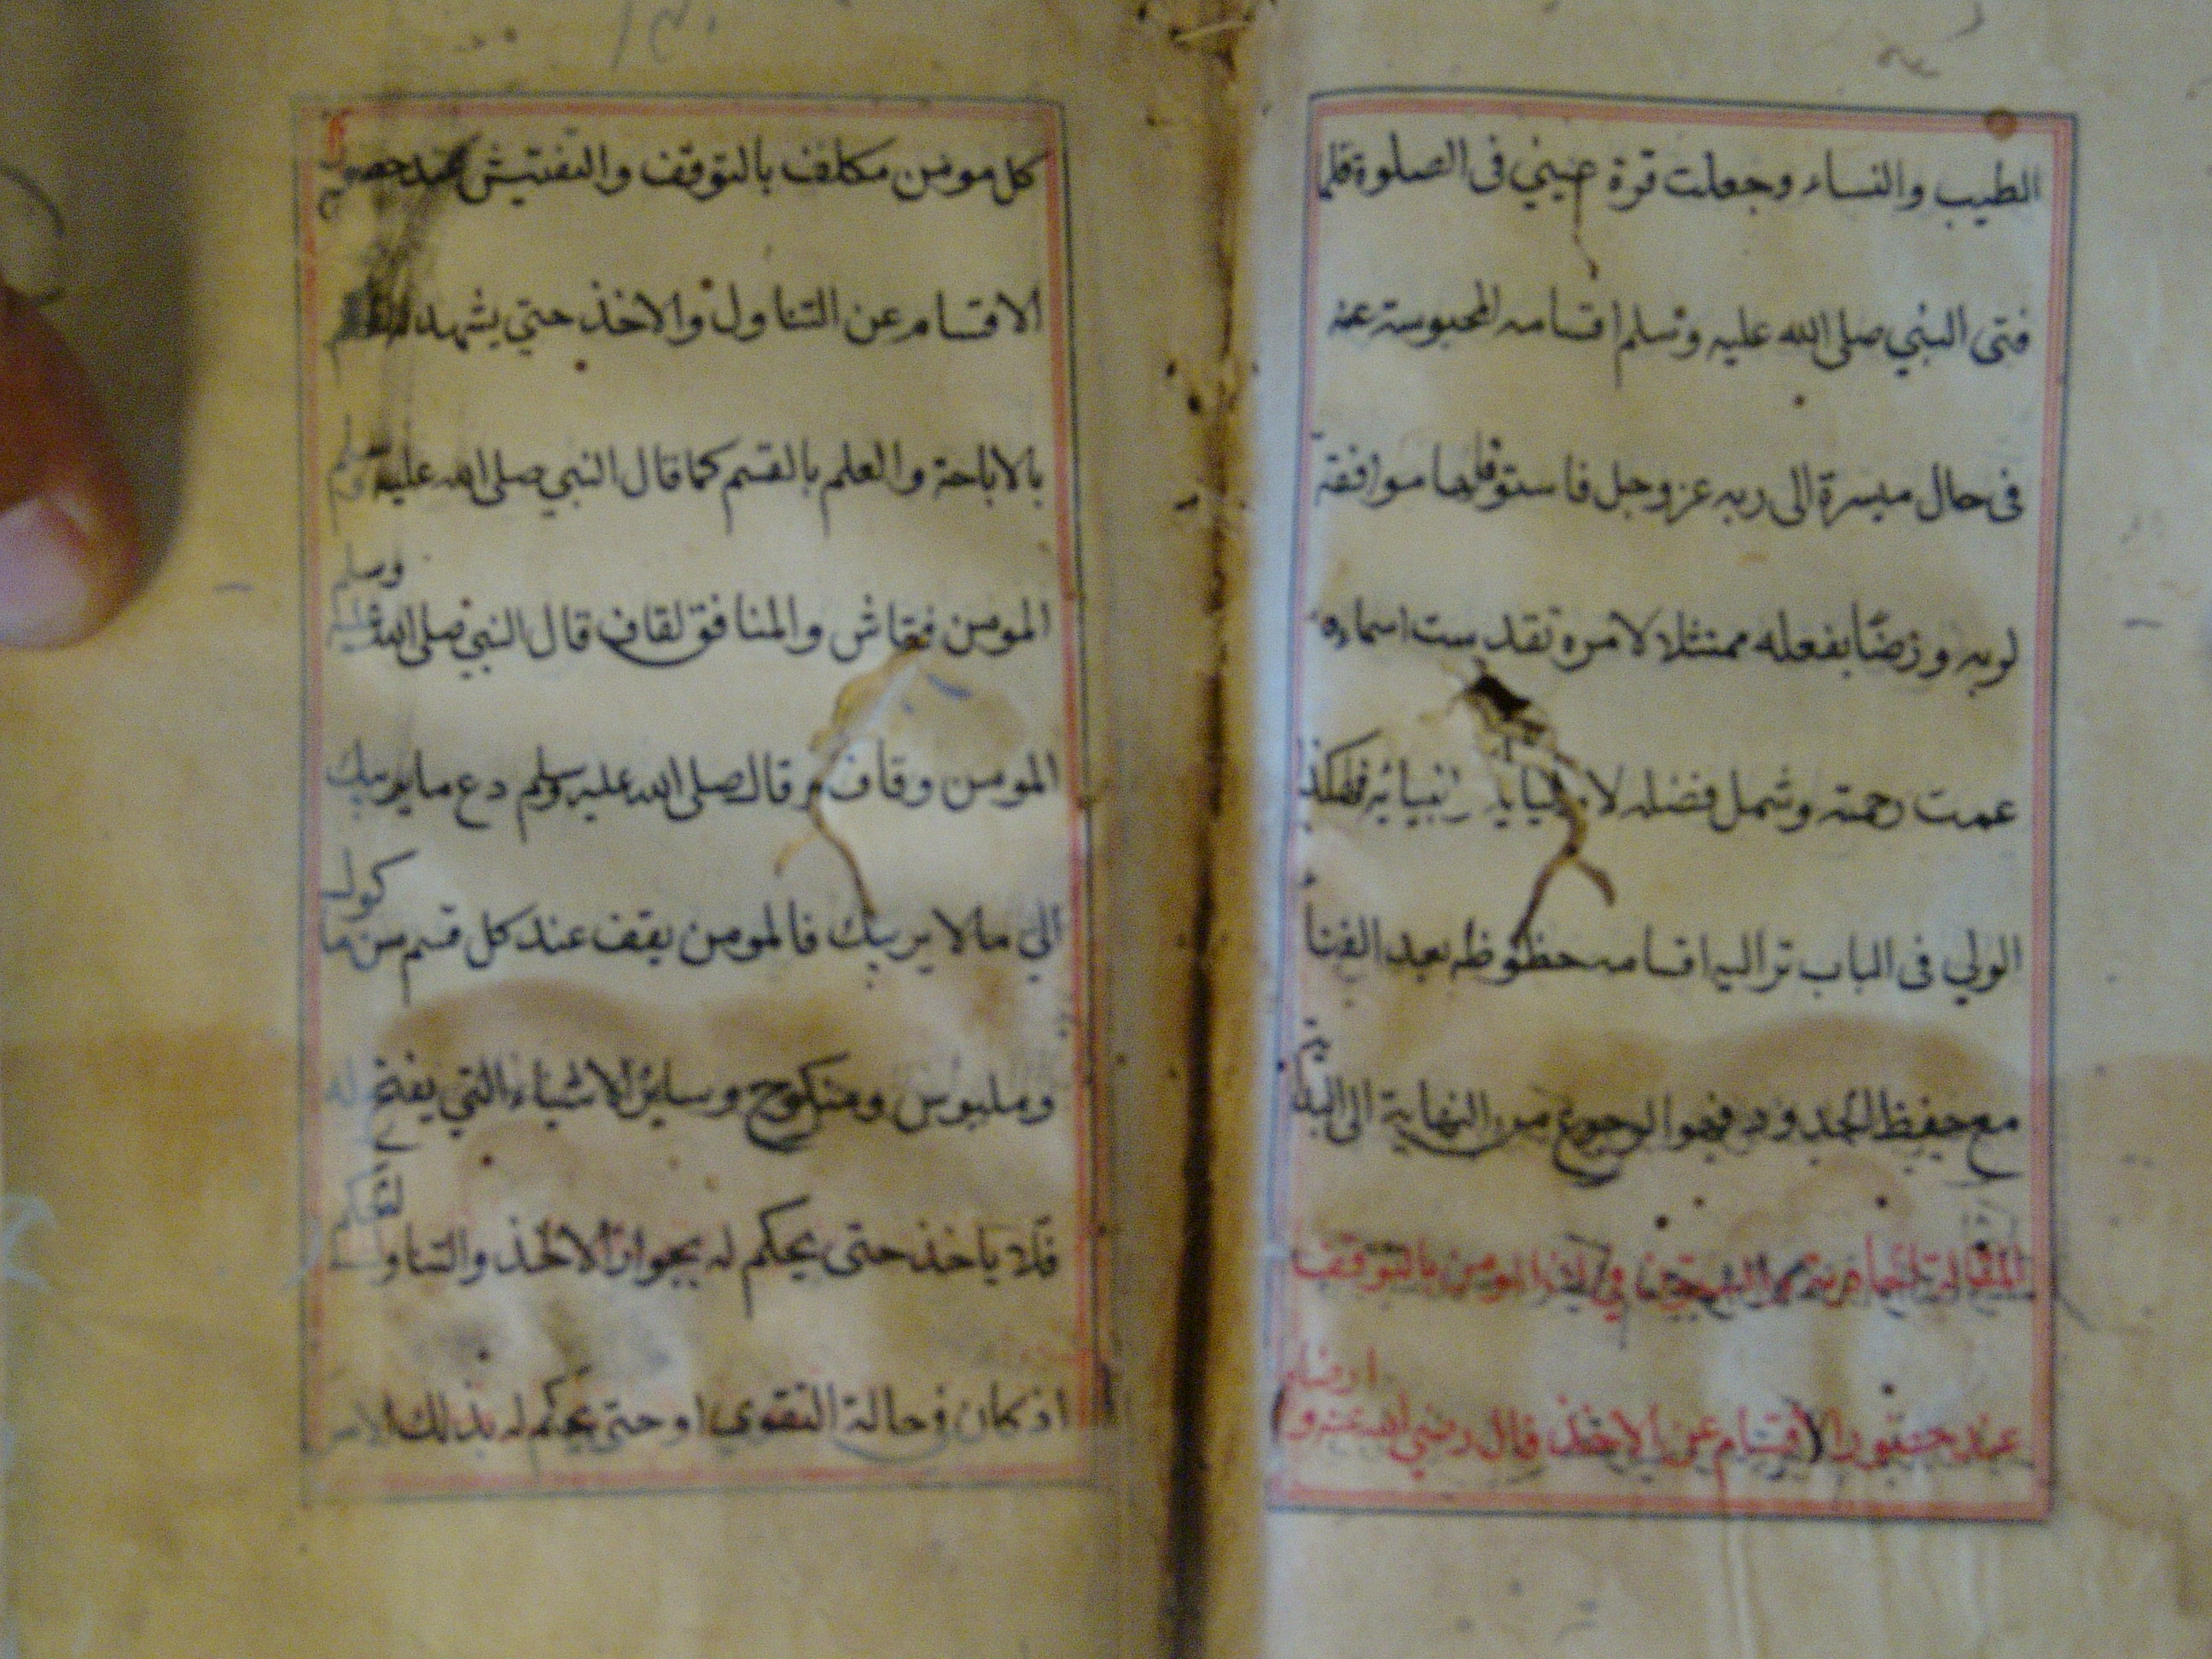 الطيب والنساء وجعلت قرة عيني فى الصلوة فلما
فتى النبي صلى الله عليه وسلم اقسامه المحبوسة عنه
فى حال ميسرة الى ربه عز وجل فاستوفاها موافقة
لربه ورضًا بفعله ممتثلا لامره تقدست اسماءه
عمت رحمته وشمل فضله انبيائه فهكذا
الولي فى الباب ترد اليه اقسامه حظوظه بعد الفنا
مع حفيظ الحدود فهو الرجوع من النهاية الى البداية
المقالة فى المومن بالتوقف
عند حضور الاقسام عن الاخذ قال رضي الله عنه وارضاه
كل مومن مكلف بالتوقف والتفتيش عند حصول
الاقسام عن التناول والاخذ حتي يشهد
بالاباحة والعلم بالقسم كما قال النبي صلى الله عليه وسلم
المومن فقاش والمنافق لقاف قال النبي صلى الله عليه وسلم
المومن وقاف وقال صلى الله عليه وسلم دع ما يريبك
الي ما لا يريبك فالمومن يقف عند كل قسم من ماكول
وملبوس ومنكوح وساير الاشياء التي يفتح له
فلا ياخذ حتى يحكم له بجواز الاخذ والتناول
اذ كان فى حالة التقوي او حتى يحكم له بذلك الامر